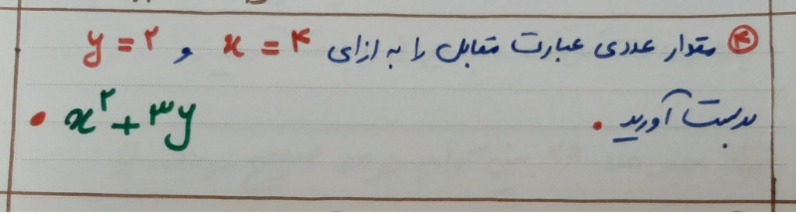 ④ مقدار عددی عبارت مقابل را به ازای x = ۴ و y = ۲
بدست آورید. x² + ۳y